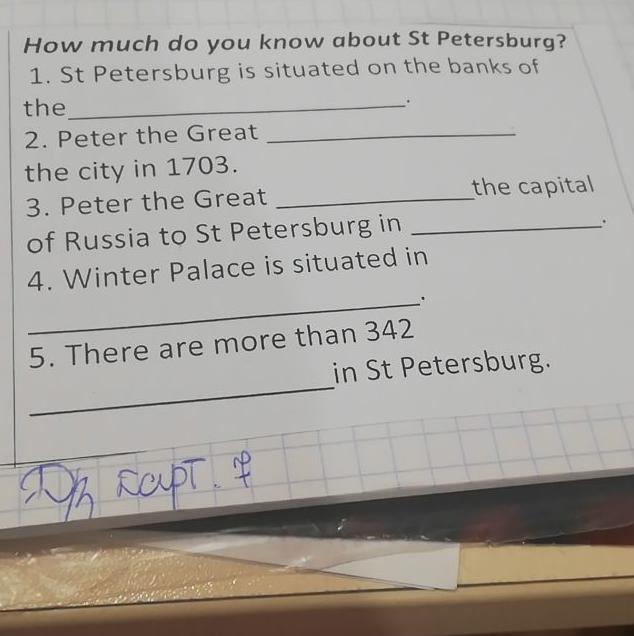 How much do you know about St Petersburg?
1. St Petersburg is situated on the banks of
the_______________.
2. Peter the Great _______________
the city in 1703.
3. Peter the Great _______________the capital
of Russia to St Petersburg in _______________.
4. Winter Palace is situated in
_______________.
5. There are more than 342
_______________in St Petersburg.
карт. 7